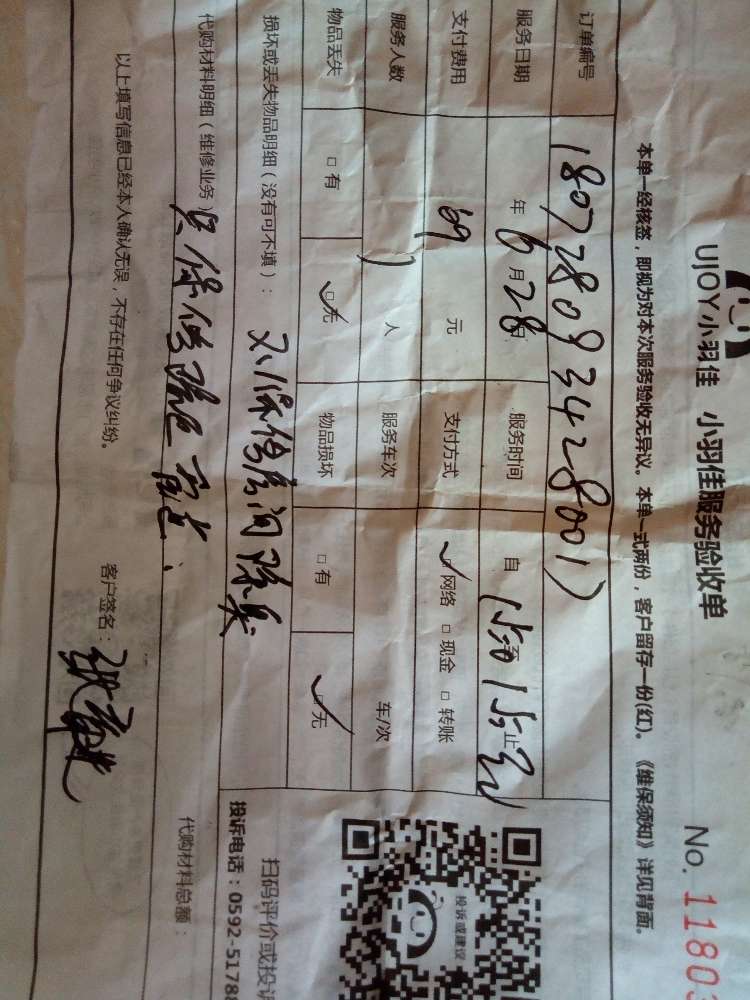 UJOY小羽佳 小羽佳服务验收单
No. 11803
本单一经核签，即视为对本次服务验收无异议。本单一式两份，客户留存一份(红)。《维保须知》详见背面。
订单编号 180728093428001)
服务日期 年 6 月 28 日 服务时间 自 至 止
支付费用 69 元 支付方式 网络 □ 现金 □ 转账
服务人数 ) 人 服务车次 车/次
物品丢失 □ 有 □ 无 物品损坏 □ 有 □ 无
损坏或丢失物品明细（没有可不填）：
代购材料明细（维修业务） 代购材料总额：
以上填写信息已经本人确认无误，不存在任何争议纠纷。 客户签名：
投诉或建议
扫码评价或投诉
投诉电话：0592-5178